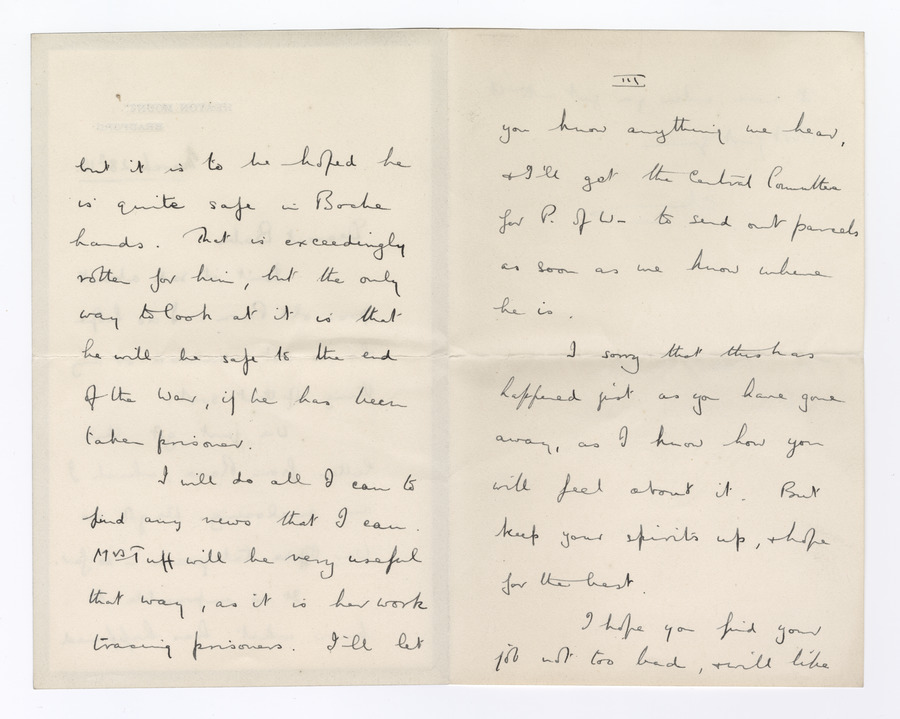 but it is to be hoped he
is quite safe in Boche
hands. That is exceedingly
rotten for him, but the only
way to look at it is that
he will be safe to the end
of the War, if he has been
taken prisoner.
I will do all I can to
find any news that I can.
Mrs Tuff will be very useful
that way, as it is her work
tracing prisoners. I'll let
III
you know anything we hear,
& I'll get the Central Committee
for P. of W- to send out parcels
as soon as we know where
he is.
I sorry that this has
happened just as you have gone
away, as I know how you
will feel about it. But
keep your spirits up, & hope
for the best.
I hope you find your
job not too bad, & will like